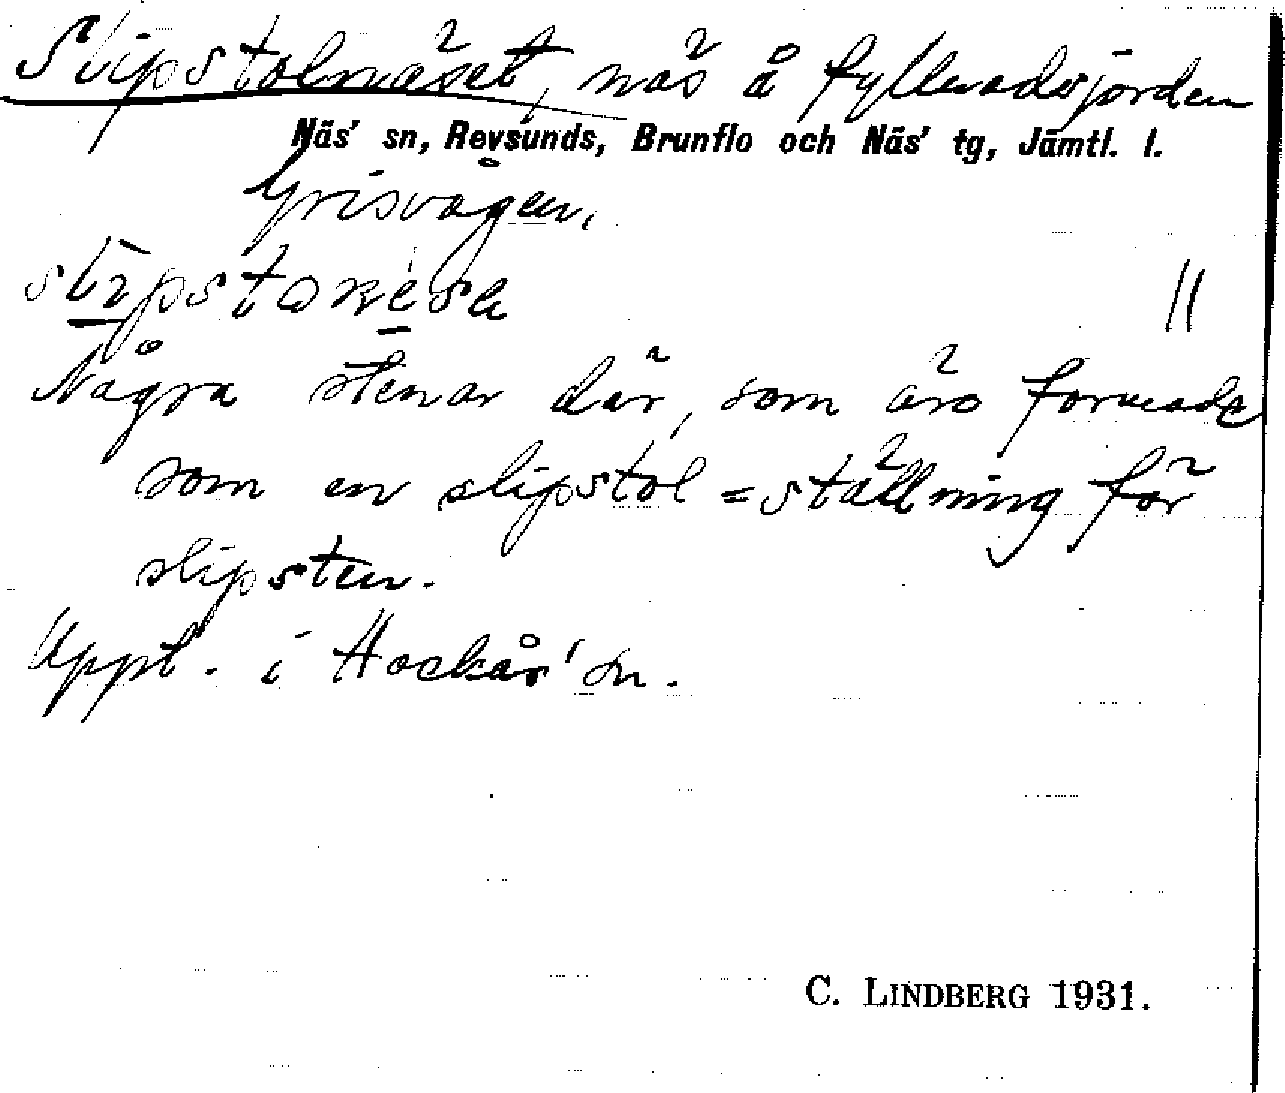 Slipstolnäset, näs å fyllnadsjorden
Näs' sn, Revsunds, Brunflo och Näs' tg, Jämtl. l.
Grisvågen.
Några stenar där, som äro formade
som en slipstol = ställning för
slipsten.
Uppt. i Hackås' sn.
C. LINDBERG 1931.